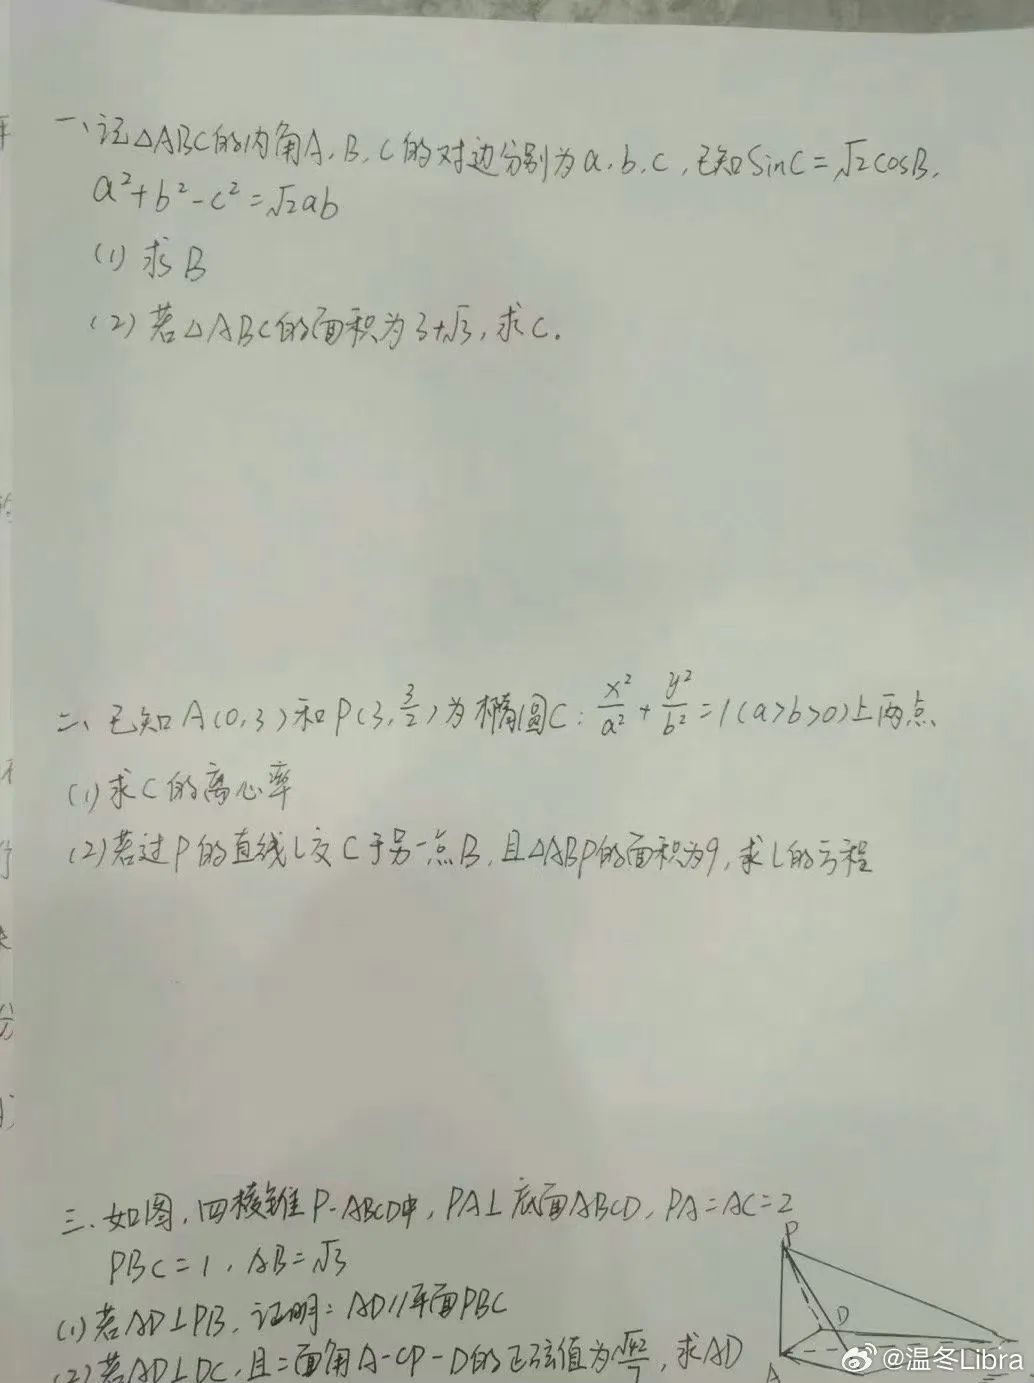 一、记△ABC的内角A、B、C的对边分别为a、b、c,已知SinC=√2cosB,
a²+b²-c²=√2ab
(1)求B
(2)若△ABC的面积为3+√3,求C.
二、已知A(0,3)和P(3,3/2)为椭圆C:x²/a²+y²/b²=1(a>b>0)上两点
(1)求C的离心率
(2)若过P的直线L交C于另一点B,且△ABP的面积为9,求L的方程
三、如图,四棱锥P-ABCD中,PA⊥底面ABCD,PA=AC=2
PBC=1,AB=√3
(1)若AD⊥PB,证明:AD//平面PBC
(2)若AD⊥DC,且二面角A-CP-D的正弦值为√42/7,求AD
P
D
A
@温冬Libra